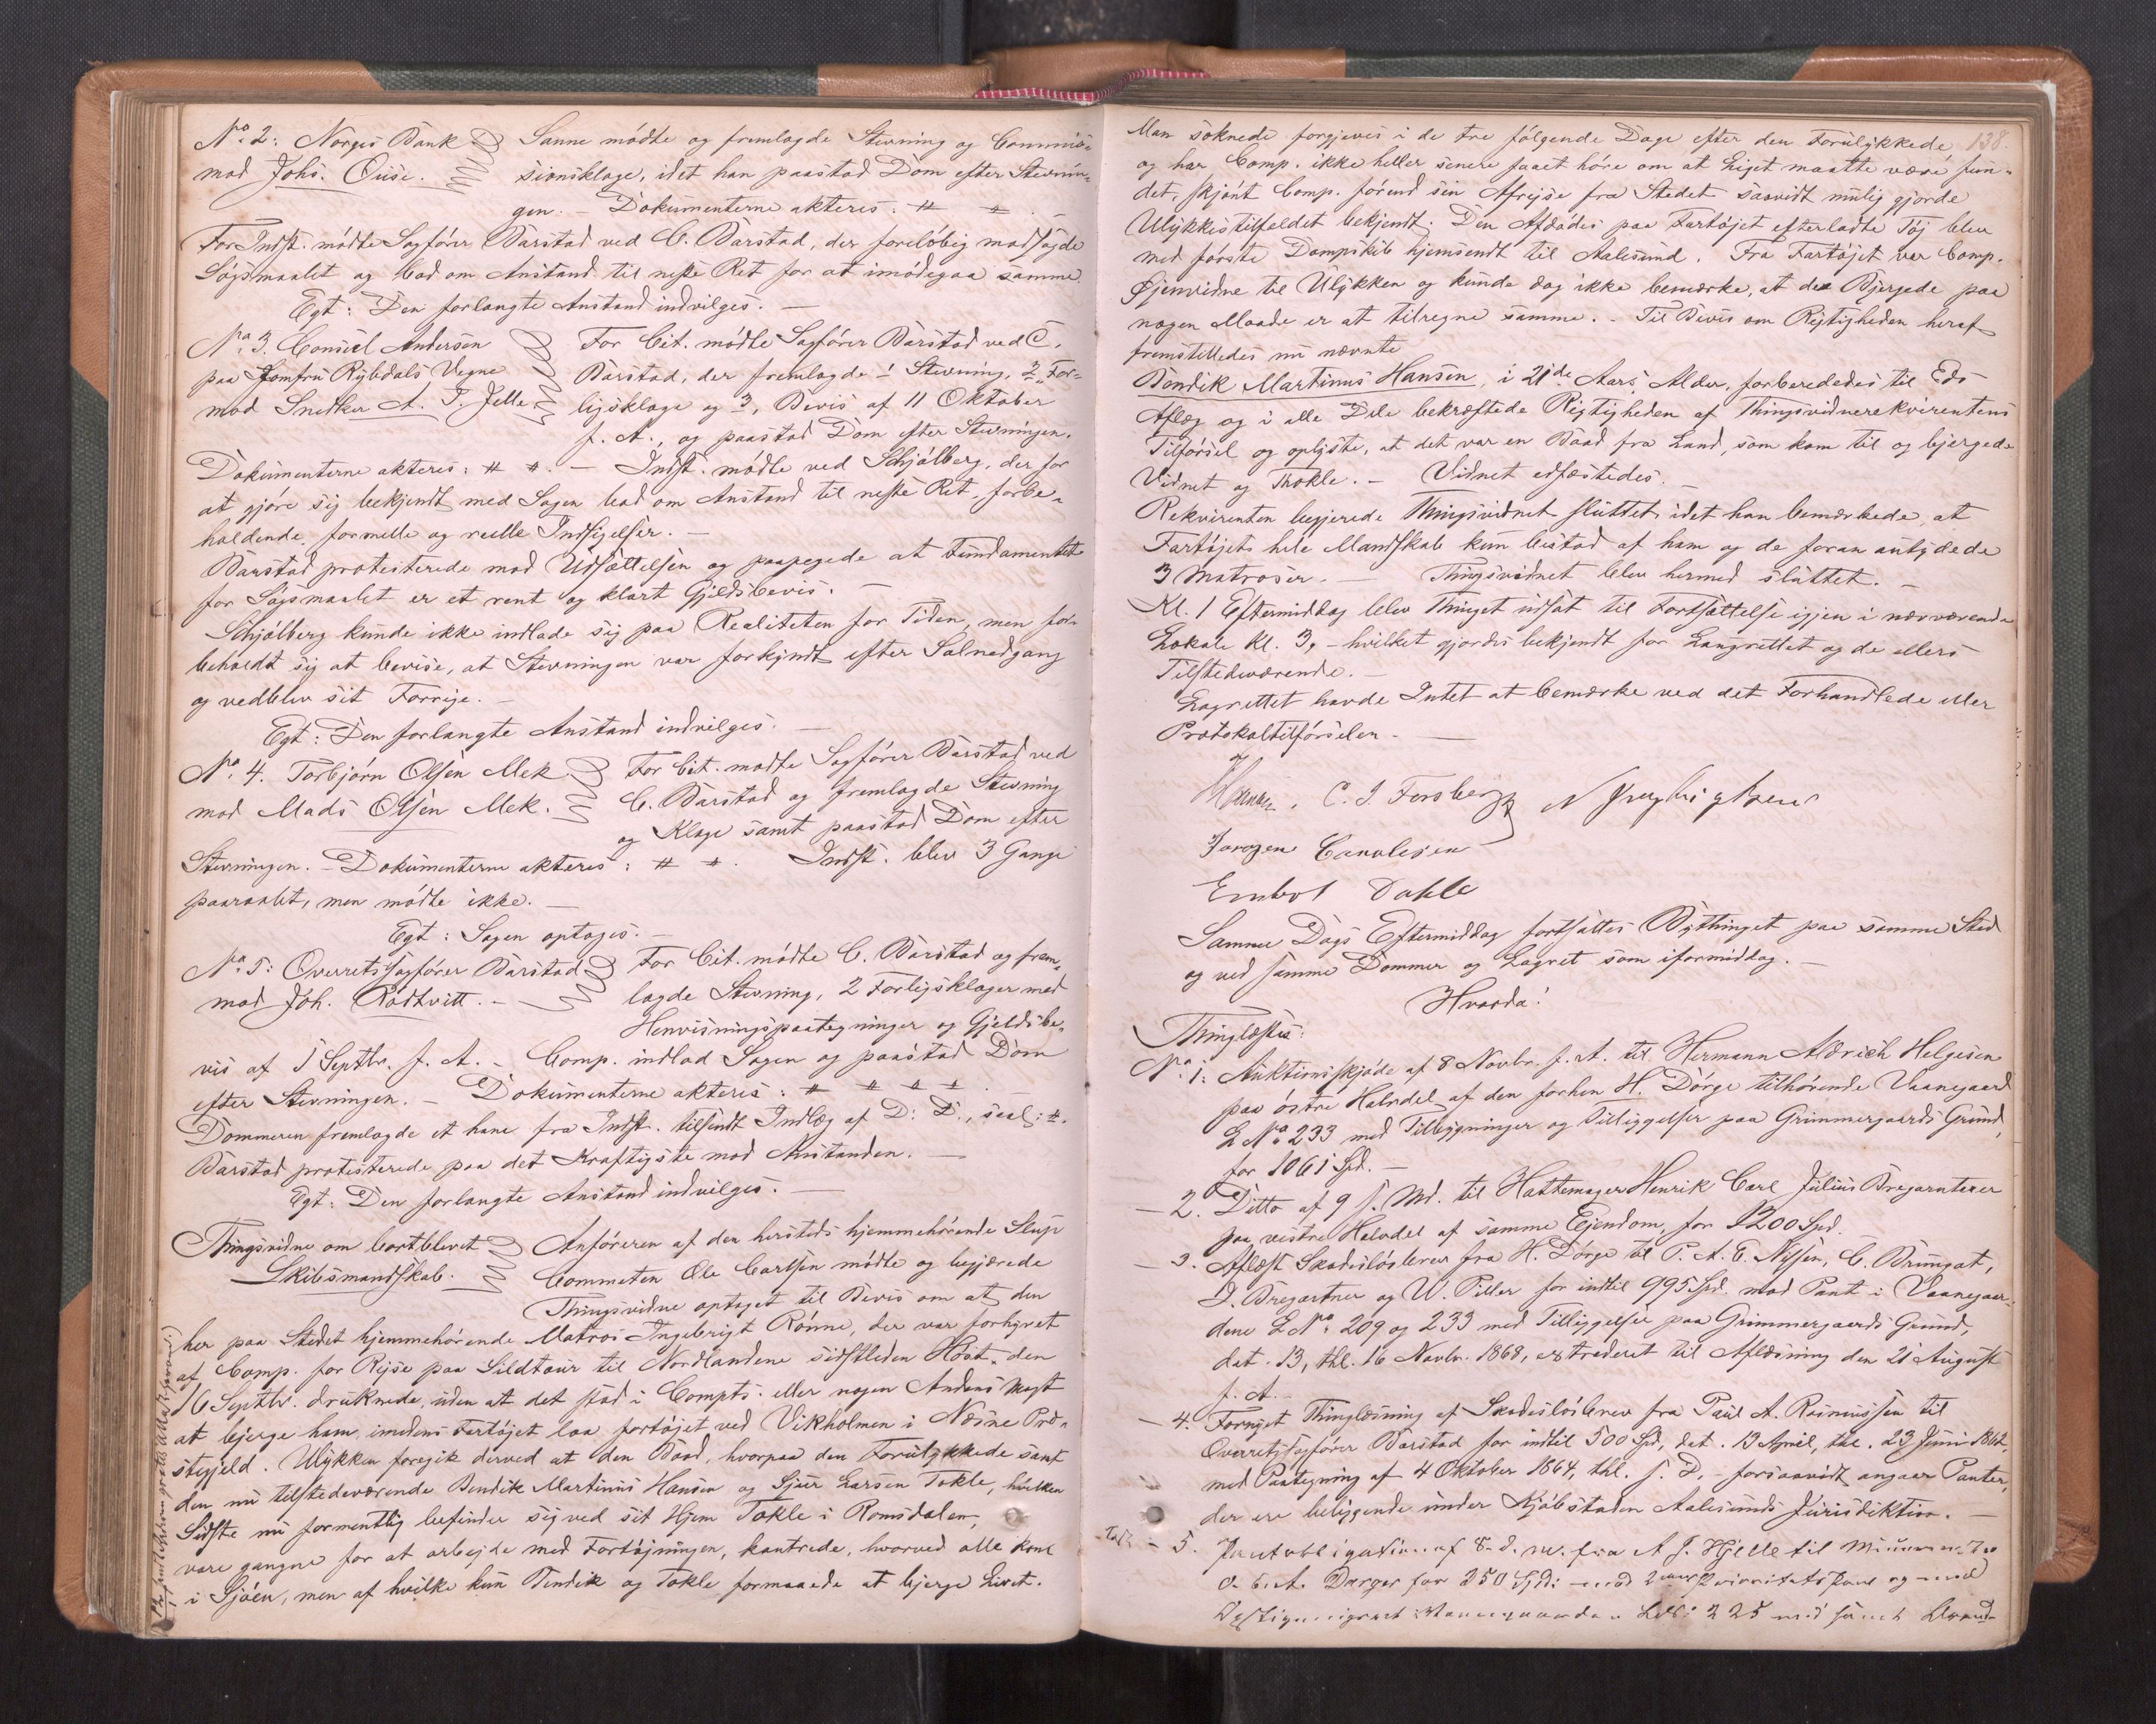 No. 2: Norges Bank
mod Johs. Ouse.
Sanne mödte og fremlagde Stevning og Commis-
sionsklage, idet han paastod Dom efter Stevnin-
gen. – Dokumenterne akteres: # #.
For Indst. mödte Sagförer Barstad ved C. Barstad, der forelöbig modsagde
Sögsmaalet og bad om Anstand til neste Ret for at imödegaa samme.
Egt: Den forlangte Anstand indvilges. –
No. 3. Consul Andersen
paa Jomfru Rÿbdals Vegne
mod Snedker A. J. Jelle
For Cit. mödte Sagförer Barstad ved C.
Barstad, der fremlagde 1 Stevning, 2, For-
ligsklage og 3, Bevis af 11 Oktober
f. A., og paastod Dom efter Stevningen.
Dokumenterne akteres: # #. – Indst. mödte ved Schjölberg, der for
at gjöre sig bekjendt med Sagen bad om Anstand til neste Ret, forbe-
holdende formelle og reelle Indsigelser. –
Barstad protesterede mod Udsættelsen og paapegede at Fundamentet
for Sögsmaalet er et rent og klart Gjeldsbevis. –
Schjölberg kunde ikke indlade sig paa Realiteten for Tiden, men for-
beholdt sig at bevise, at Stevningen var forkyndt efter Solnedgang
og vedblev sit Forrige. –
Egt: Den forlangte Anstand indvilges. –
No. 4. Torbjörn Olsen Mek
mod Mads Olsen Mek.
For Cit. mödte Sagförer Barstad ved
C. Barstad og fremlagde Stevning
og Klage samt paastod Dom efter
Stevningen. – Dokumenterne akteres: # #. Indst. blev 3 Gange
paaraabt, men mödte ikke. –
Egt: Sagen optages. –
No. 5: Overretssagförer Barstad
mod Joh. Rödtvitt. –
For Cit. mödte C. Barstad og frem-
lagde Stevning, 2 Forligsklager med
Henvisningspaategninger og Gjeldsbe-
vis af 5 Septbr. f. A. – Comp. indlod Sagen og paastod Dom
efter Stevningen. – Dokumenterne akteres: # # # #.
Dommeren fremlagde et ham fra Indst. tilsendt Indlæg af D: D., saal: #.
Barstad protesterede paa det Kraftigste mod Anstanden. –
Egt: Den forlangte Anstand indvilges. –
Thingsvidne om bortblevet
Skibsmandskab.
Anföreren af den hersteds hjemmehörende Slup
Cometen Ole Carlsen mödte og begjærede
Thingsvidne optaget til Bevis om at den
her paa Stedet hjemmehörende Matros Ingebrigt Rönne, der var forhyret
af Comp. for Rejse paa Sildtour til Nordlandene sidstleden Höst, den
16 Septbr. druknede, uden at det stod i Compts. eller nogen Andens Magt
at bjerge ham, imedens Fartöjet laa fortöjet ved Vikholmen i Næsne Præ-
stegjeld. Ulykken foregik derved at den Baad, hvorpaa den Forulykkede samt
den nu tilstedeværende Bendik Martinus Hansen og Sjur Larsen Tokle, hvilken
Sidste nu formentlig befinder sig ved sit Hjem Tokle i Romsdalen,
vare gangne for at arbejde med Fortöjningen, kantrede, hvorved alle kom
i Sjöen, men af hvilke kun Bendik og Tokle formaaede at bjerge Livet.
138.
Man söknede forgjeves i de tre fölgende Dage efter den Forulykkede
og har Comp. ikke heller senere faaet höre om at Liget maatte være fun-
det, skjönt Comp. förend sin Afrejse fra Stedet saavidt mulig gjorde
Ulykkestilfældet bekjendt. Den Afdödes paa Fartöjet efterladte Töj blev
med förste Dampskib hjemsendt til Aalesund. Fra Fartöjet var Comp.
Öjenvidne til Ulykken og kunde dog ikke bemærke, at de Bjergede paa
nogen Maade er at tilregne samme. – Til Bevis om Rigtigheden heraf
fremstilledes nu nævnte
Bendik Martinus Hansen, i 21de Aars Alder, forberededes til Eds
Aflæg og i alle Dele bekræftede Rigtigheden af Thingsvidnerekvirentens
Tilförsel og oplyste, at det var en Baad fra Land, som kom til og bjergede
Vidnet og Tokle. – Vidnet edfæstedes. –
Rekvirenten begjerede Thingsvidnet sluttet, idet han bemærkede, at
Fartöjets hele Mandskab kun bestod af ham og de foran antydede
3 Matroser. – Thingsvidnet blev hermed sluttet. –
Kl. 1 Eftermiddag blev Thinget udsat til Fortsættelse igjen i nærværende
Lokale Kl. 3, – hvilket gjordes bekjendt for Laugrettet og de ellers
Tilstedeværende. –
Lagrettet havde Intet at bemærke ved det Forhandlede eller
Protokoltilförselen. –
C. J. Forsberg
Embret Dahle
Samme Dags Eftermiddag fortsattes Bythinget paa samme Sted
og ved samme Dommer og Lagret som iformiddag. –
Hvorda:
Thinglæstes:
No. 1: Auktionsskjöde af 8 Novbr. f. A. til Hermann Aldrich Helgesen
paa östre Halvdel af den forhen H. Dörge tilhörende Vaanegaard
L No. 233 med Tilbygninger og Tilliggelser paa Grimmergaards Grund,
for 1061 Spd. –
– 2. Ditto af 9 s. Md. til Hattemager Henrik Carl Julius Bregartner
paa vestre Halvdel af samme Ejendom, for 1200 Spd.
– 3. Aflæst Skadeslösbrev fra H. Dörge til P. A. E. Nissen, C. Brungot,
J. Bregartner og W. Piller for indtil 995 Spd. mod Pant i Vaanegaar-
dene L No. 209 og 233 med Tilliggelser paa Grimmergaards Grund,
dat. 13, thl. 16 Novbr. 1868, extraderet til Aflæsning den 21 August
f. A. –
– 4. Fornyet Thinglæsning af Skadeslösbrev fra Paul A. Rasmussen til
Overretssagförer Barstad for indtil 500 Spd., dat. 13 April, thl. 23 Juni 1862,
med Paategning af 4 Oktober 1864, thl. s. D., – forsaavidt angaar Panter,
der ere beliggende under Kjöbstaden Aalesunds Jurisdiktion. –
– 5. Pantobligation af d. m. fra A J. Hjelle til
Darger for 250 Spd: mod 2
225 med